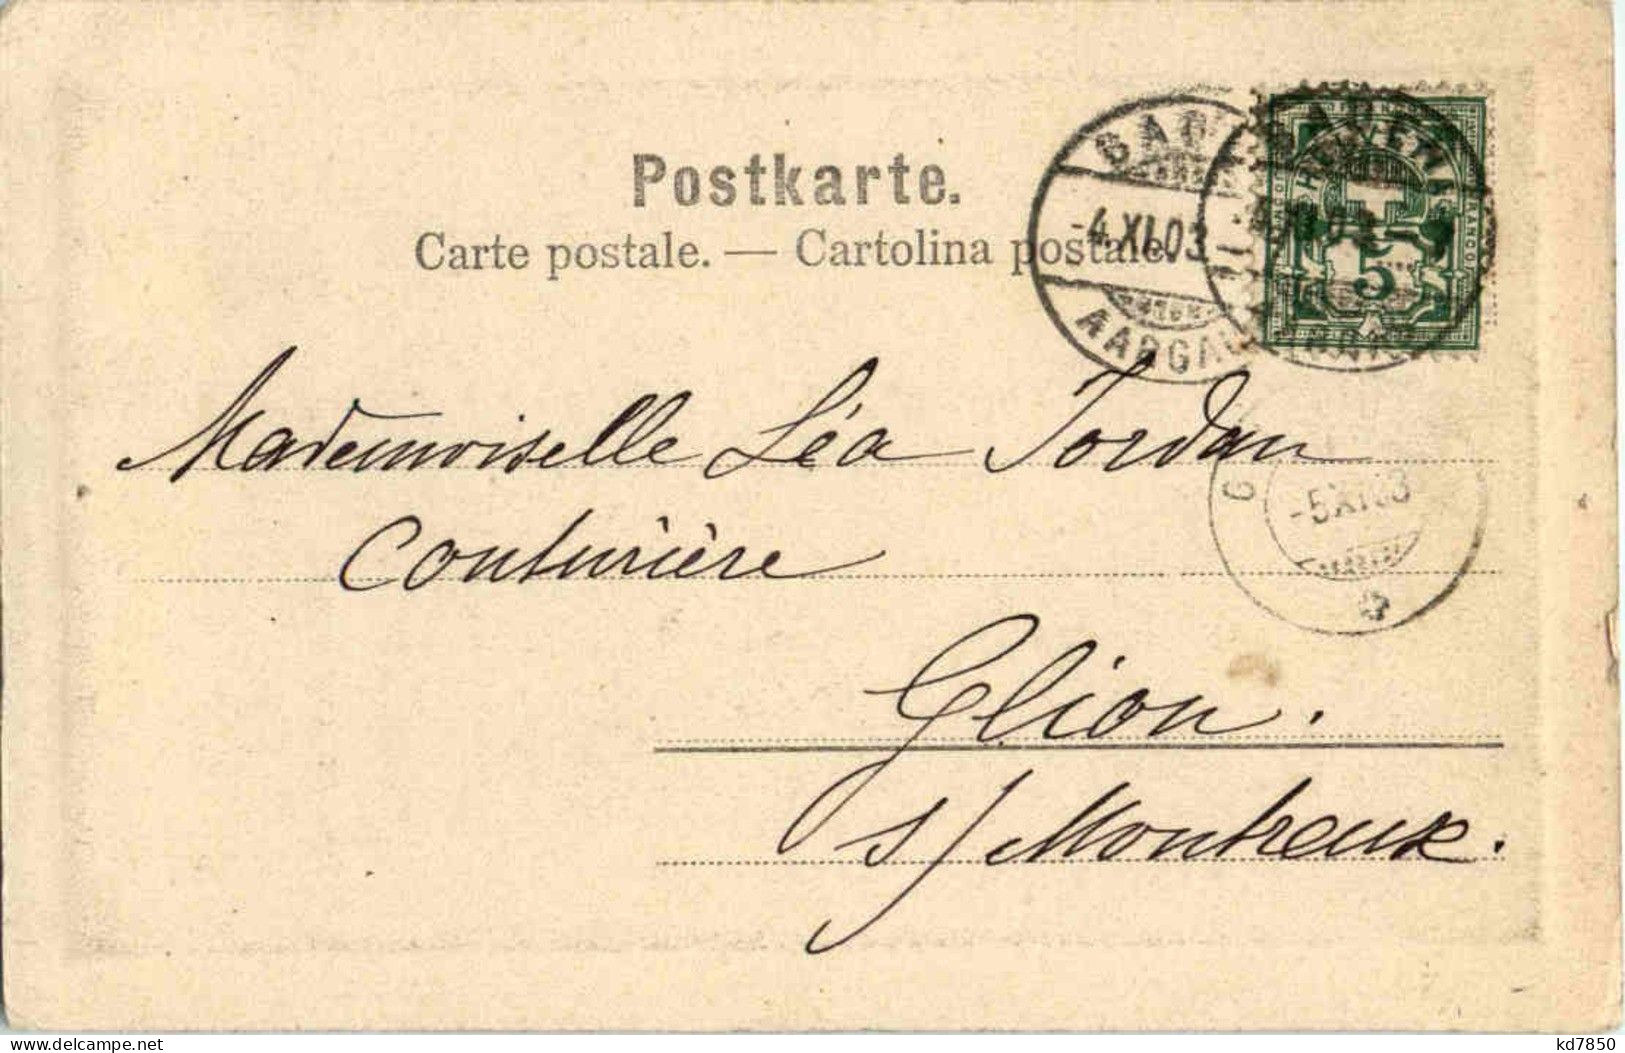 Postkarte.
Carte postale. — Cartolina postale.
BADEN
-4.XI.03
AARGAU
HELVETIA
FRANCO
5
Mademoiselle Léa Jordan
-5.XI.03
Couturière
Glion.
s/ Montreux.
delcampe.net
kd7850